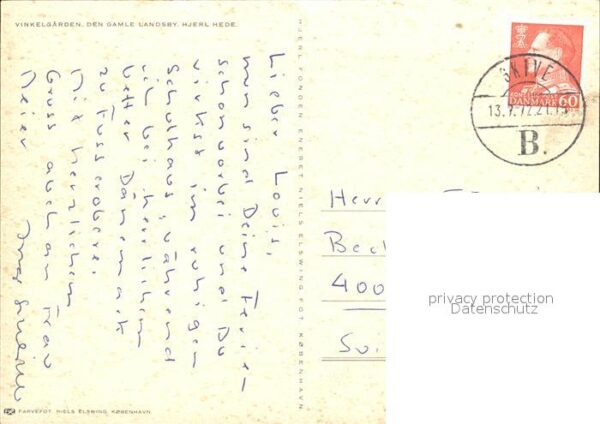 VINKELGÅRDEN. DEN GAMLE LANDSBY. HJERL HEDE.
Lieber Louis,
nun sind Deine Ferien
schon vorbei und Du
wirkst im ruhigen
Schulhaus, während
ich bei herrlichem
Wetter Dänemark
zu Fuss erobere.
Mit herzlichem
Gruss auch an Frau
Meier
HJERL-FONDEN ENERET NIELS ELSWING FOT. KØBENHAVN
SKIVE
13.7.72.21.15
B.
DANMARK 60
Herr
400
privacy protection
Datenschutz
FARVEFOT. NIELS ELSWING, KØBENHAVN.